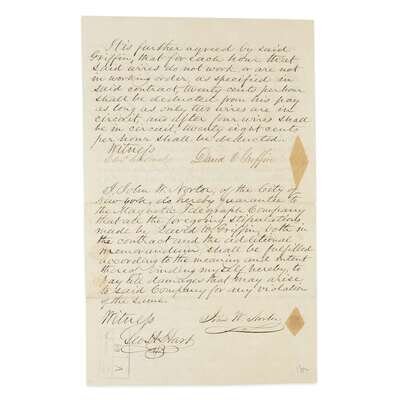 It is further agreed by said
Griffin, that for each hour that
said wires do not work or are not
in working order, as specified in
said contract, twenty cents per hour
shall be deducted from his pay
as long as only two wires are in
circuit and after four wires shall
be in circuit, twenty eight cents
per hour shall be deducted.
Witness
David W. Griffin
I, John W. Norton, of the City of
New York, do hereby Guarantee to
the Magnetic Telegraph Company
that all the forgoing stipulations
made by David W. Griffin, both in
the contract and the additional
memorandum shall be fulfilled
according to the meaning and intent
thereof binding myself hereby, to
pay all damages that may arise
to said Company for any violation
of the same.
Witness
John W. Norton
Geo. H. Hart